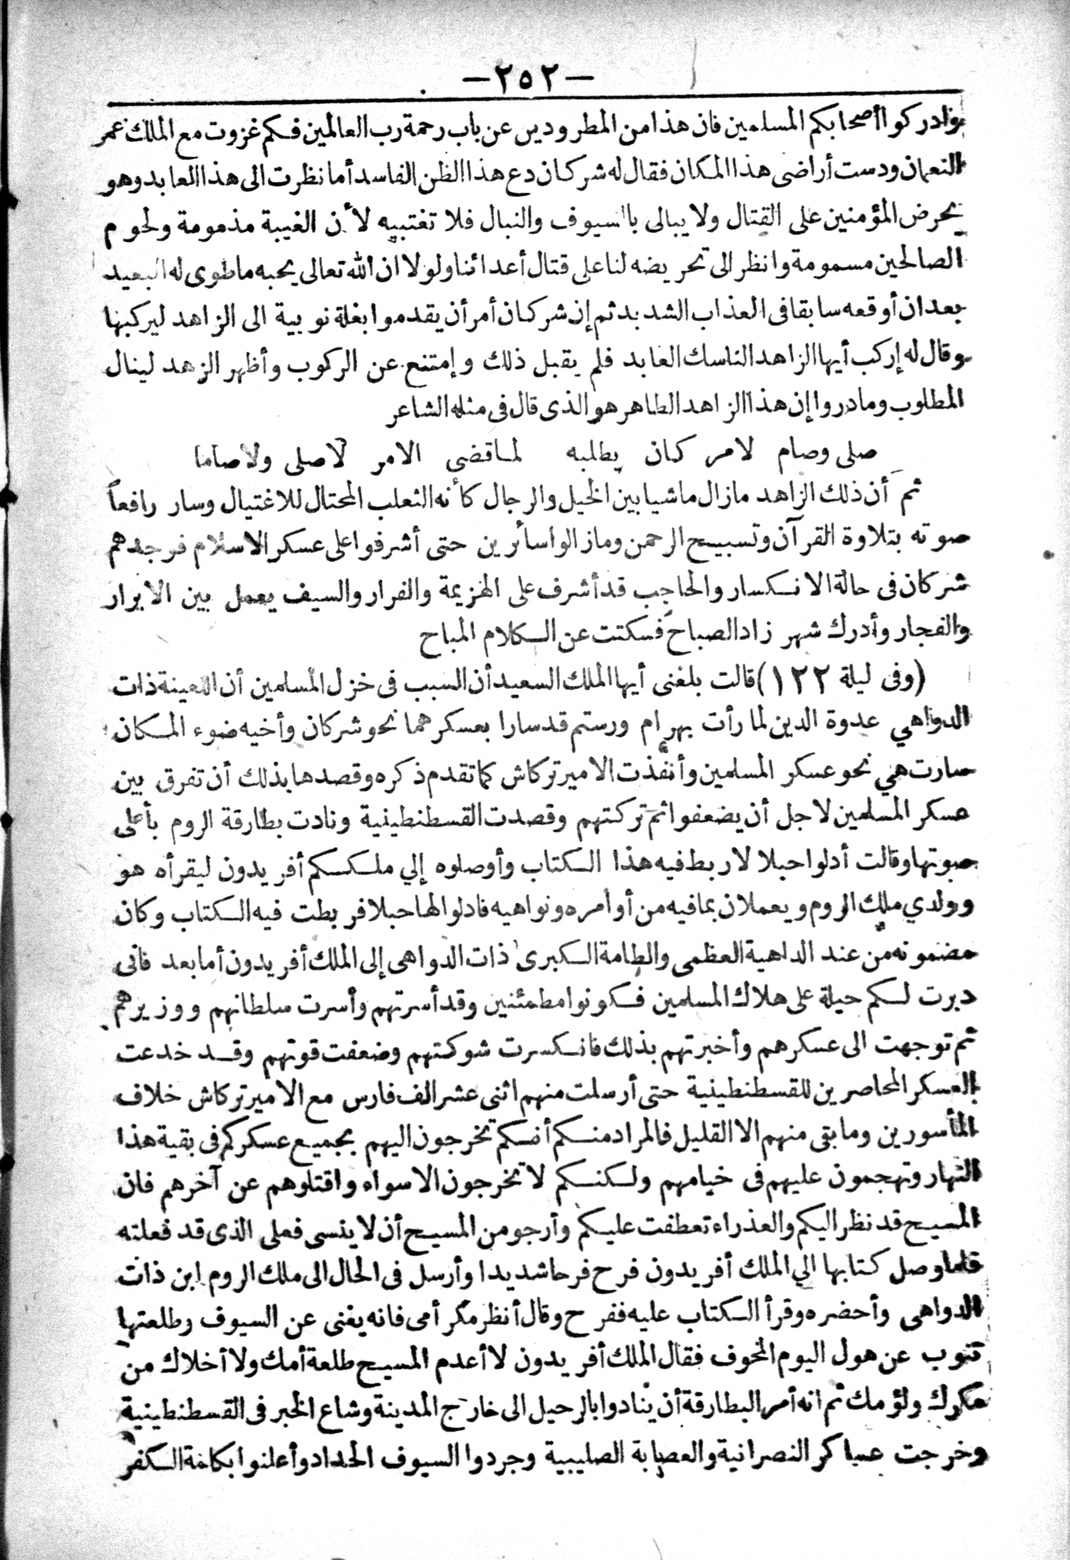 —٢٥٢—
وادركوا أصحابكم المسلمين فان هذا من المطرودين عن باب رحمة رب العالمين فكم غزوت مع الملك عمر
النعمان ودست أراضى هذا المكان فقال له شركان دع هذا الظن الفاسد أما نظرت الى هذا العابد وهو
يحرض المؤمنين على القتال ولا يبالى بالسيوف والنبال فلا تغتبيه لأن الغيبة مذمومة ولحوم
الصالحين مسمومة وانظر الى تحريضه لنا على قتال أعدائنا ولولا ان الله تعالى يحبه ما طوى له البعيد
بعد ان أوقعه سابقا فى العذاب الشديد ثم إن شركان أمر أن يقدموا بغلة نوبية الى الزاهد ليركبها
وقال له إركب أيها الزاهد الناسك العابد فلم يقبل ذلك وإمتنع عن الركوب وأظهر الزهد لينال
المطلوب ومادروا إن هذا الزاهد الطاهر هو الذى قال فى مثله الشاعر
صلى وصام لامر كان يطلبه لما قضى الامر لاصلى ولا صاما
ثم أن ذلك الزاهد مازال ماشيا بين الخيل والرجال كأنه الثعلب المحتال للاغتيال وسار رافعاً
صوته بتلاوة القرآن وتسبيح الرحمن ومازالوا سائرين حتى أشرفوا على عسكر الاسلام فوجدهم
شركان فى حالة الانكسار والحاجب قد أشرف على الهزيمة والفرار والسيف يعمل بين الابرار
والفجار وأدرك شهر زاد الصباح فسكتت عن الكلام المباح
(وفى ليلة ١٢٢) قالت بلغنى أيها الملك السعيد أن السبب فى خزل المسلمين أن اللعينة ذات
الدواهي عدوة الدين لما رأت بهرام ورستم قد سارا بعسكرهما نحو شركان وأخيه ضوء المكان
صارت هي نحو عسكر المسلمين وأنفذت الامير تركاش كما تقدم ذكره وقصدها بذلك أن تفرق بين
عسكر المسلمين لاجل أن يضعفوا ثم تركتهم وقصدت القسطنطينية ونادت بطارقة الروم بأعلى
صوتها وقالت أدلوا حبلا لاربط فيه هذا الكتاب وأوصلوه إلي ملككم أفريدون ليقرأه هو
وولدي ملك الروم ويعملان بما فيه من أوامره ونواهيه فادلوا لها حبلا فربطت فيه الكتاب وكان
مضمونه من عند الداهية العظمى والطامة الكبرى ذات الدواهى إلى الملك أفريدون أما بعد فانى
دبرت لكم حيلة على هلاك المسلمين فكونوا مطمئنين وقد أسرتهم وأسرت سلطانهم ووزيرهم
ثم توجهت الى عسكرهم وأخبرتهم بذلك فانكسرت شوكتهم وضعفت قوتهم وقد خدعت
العسكر المحاصرين للقسطنطينية حتى أرسلت منهم اثنى عشر الف فارس مع الامير تركاش خلاف
المأسورين وما بقى منهم الا القليل فالمراد منكم أنكم تخرجون اليهم بجميع عسكركم فى بقية هذا
النهار وتهجمون عليهم فى خيامهم ولكنكم لا تخرجون الا سواء واقتلوهم عن آخرهم فان
المسيح قد نظر اليكم والعذراء تعطفت عليكم وأرجو من المسيح أن لا ينسى فعلى الذى قد فعلته
فلما وصل كتابها الي الملك أفريدون فرح فرحا شديدا وأرسل فى الحال الى ملك الروم ابن ذات
الدواهى وأحضره وقرأ الكتاب عليه ففرح وقال أنظر مكر أمى فانه يغنى عن السيوف وطلعتها
تنوب عن هول اليوم المخوف فقال الملك أفريدون لا أعدم المسيح طلعة أمك ولا أخلاك من
مكرك ولؤمك ثم انه أمر البطارقة أن ينادوا بالرحيل الى خارج المدينة وشاع الخبر فى القسطنطينية
وخرجت عساكر النصرانية والعصابة الصليبية وجردوا السيوف الحداد وأعلنوا بكلمة الكفر